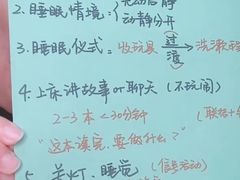 2.睡眠情境:{
动静分开
3.睡眠仪式:收玩具 过渡→洗漱
4.上床讲故事or聊天(不玩闹)
2-3本<30分钟
(联结+
"这本读完,要做什么?"
5.关灯.睡觉